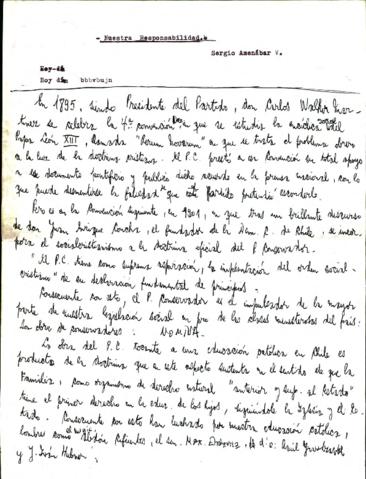 - Nuestra Responsabilidad.-
Sergio Amenábar V.
Hoy-dá
Hoy dia bbbvbujn
En 1895, siendo Presidente del Partido, don Carlos Walker Mar-
tinez se celebra la 4ta convención en que se estudia la encíclica social del
Papa León XIII, llamada "Rerum Novarum" en que se trata el problema obrero
a la luz de la doctrina cristiana. El P.C. prestó a esa Convención su total apoyo
a ese documento pontificio y publicó dicho acuerdo en la prensa nacional, con lo
que puede desmentirse la falsedad de que este Partido pretendió esconderlo.
Pero es en la Convención siguiente, en 1901, en que tras un brillante discurso
de don Juan Enrique Concha, el fundador de la dem. C. de Chile, se incor-
pora el socialcristianismo a la doctrina oficial del P Conservador.
"El P.C. tiene como suprema aspiración, la implantación del orden social-
cristiano" de su declaración fundamental de principios.
Consecuente con esto, el P. Conservador es el impulsador de la mayor
parte de nuestra legislación social en pro de las clases menesterosas del país:
La obra de conservadores: NOMINA.
La obra del P.C. tocante a una educación católica en Chile es
producto de la doctrina que a este respecto sustenta en el sentido de que la
Familia, como organismo de derecho natural "anterior y sup. al Estado"
tiene el primer derecho en la educ. de los hijos, siguiéndole la Iglesia y el Es-
tado. Consecuente con esto han luchado por nuestra educación católica,
hombres como Abdón Cifuentes, el sen.
y J.